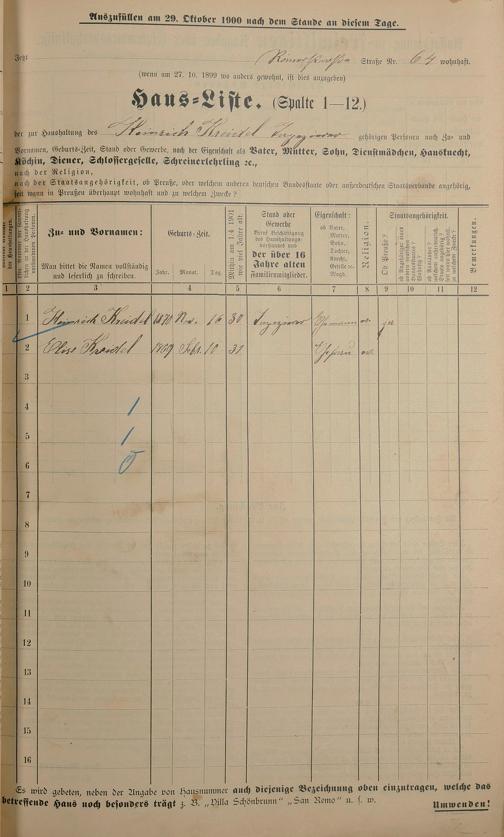 Auszufüllen am 29. Oktober 1900 nach dem Stande an diesem Tage.
Jetzt Straße Nr. 64 wohnhaft.
(wenn am 27. 10. 1899 wo anders gewohnt, ist dies anzugeben)
Haus-Liste. (Spalte 1—12.)
der zur Haushaltung des Heinrich Kreidel Ingenieur gehörigen Personen nach Zu- und
Vornamen, Geburts-Zeit, Stand oder Gewerbe, nach der Eigenschaft als Vater, Mutter, Sohn, Dienstmädchen, Hausknecht,
Köchin, Diener, Schlossergeselle, Schreinerlehrling ꝛc.,
nach der Religion,
nach der Staatsangehörigkeit, ob Preuße, oder welchem anderen deutschen Bundesstaate oder außerdeutschen Staatsverbande angehörig,
seit wann in Preußen überhaupt wohnhaft und zu welchem Zwecke?
Zu- und Vornamen:
Man bittet die Namen vollständig und leserlich zu schreiben.
Geburts-Zeit.
Jahr. Monat. Tag.
Mithin am 1.4.1901 wie viel Jahre alt:
Stand oder Gewerbe
der über 16 Jahre alten Familienmitglieder.
Eigenschaft:
ob Vater, Mutter, Sohn, Tochter, Knecht, Geselle oder Magd.
Religion.
Staatsangehörigkeit.
Ob Preuße?
Bemerkungen.
1 2 3 4 5 6 7 8 9 10 11 12
1 Heinrich Kreidel 1870 Nov. 16 30 Ingenieur Ehemann ev. ja
2 Elise Kreidel 1869 Sept. 10 31 Ehefrau ev.
3
4 1
5 1
6 0
7
8
9
10
11
12
13
14
15
16
Es wird gebeten, neben der Angabe von Hausnummer auch diejenige Bezeichnung oben einzutragen, welche das
betreffende Haus noch besonders trägt z. B. „Villa Schönbrunn" „San Remo" u. s. w.
Umwenden!